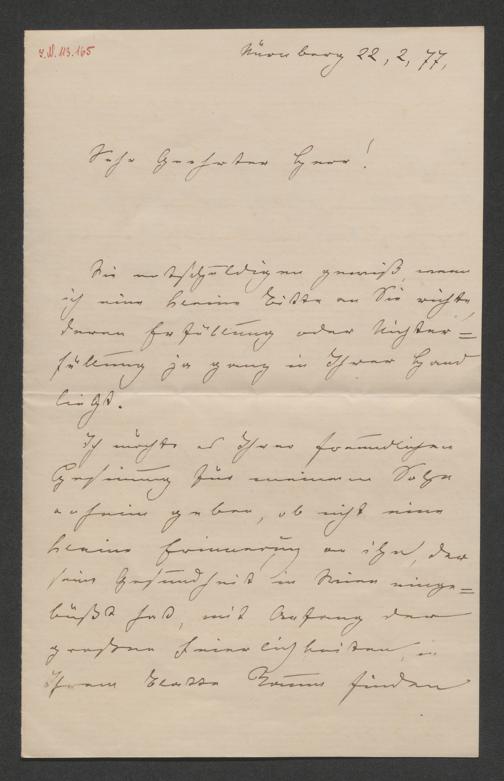 I.N. 113.165
Nürnberg 22, 2, 77,
Sehr Geehrter Herr!
Sie entschuldigen gewiß, wenn
ich eine kleine Bitte an Sie richte,
deren Erfüllung oder Nichter=
füllung ja ganz in Ihrer Hand
liegt.
Ich möchte es Ihrer freundlichen
Gesinnung für meinen Sohn
anheim geben, ob nicht eine
kleine Erinnerung an ihn, der
seine Gesundheit in Wien einge=
büßt hat, mit Anfang der
großen Feierlichkeiten, in
Ihrem Blatte Raum finden